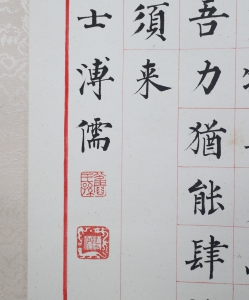 吾力猶能肆
須来
士溥儒